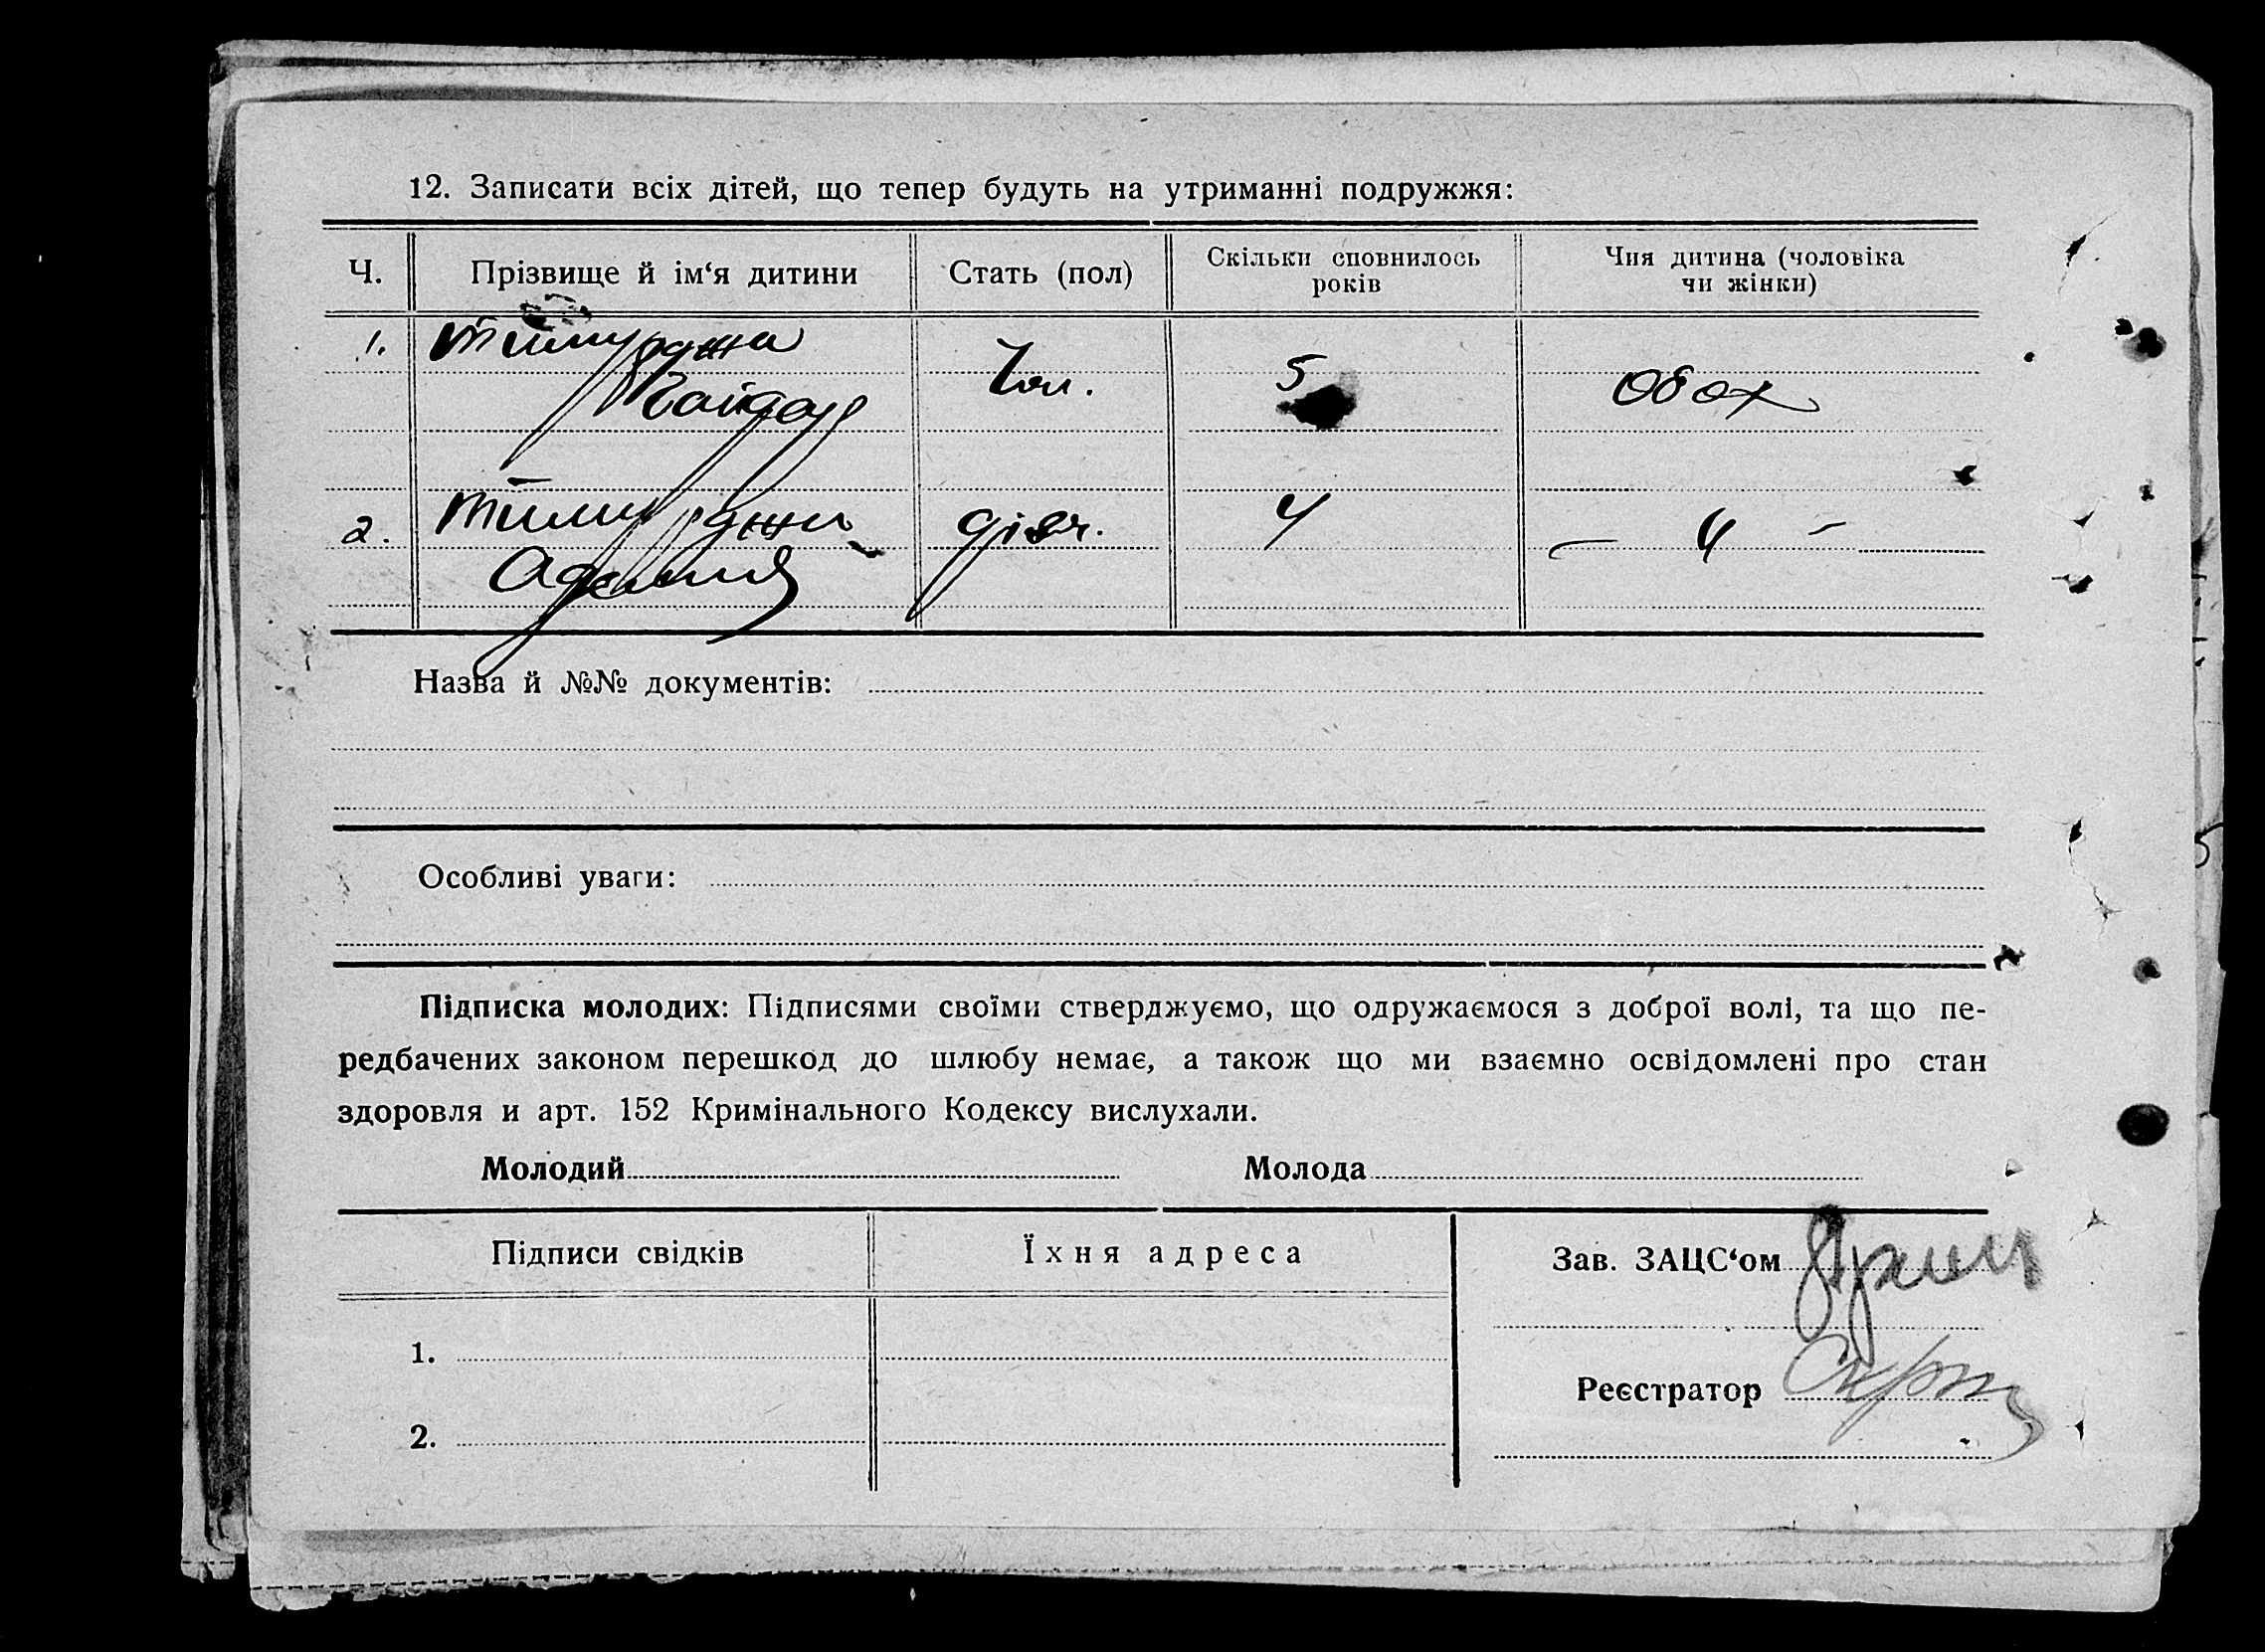 12. Записати всіх дітей, що тепер будуть на утриманні подружжя:
Ч. Прізвище й ім‘я дитини Стать (пол) Скільки сповнилось років Чия дитина (чоловіка чи жінки)
1. Чол. 5 Обох
2. дівч. 4 – 〃 –
Назва й №№ документів:
Особливі уваги:
Підписка молодих: Підписями своїми стверджуємо, що одружаємося з доброї волі, та що пе-
редбачених законом перешкод до шлюбу немає, а також що ми взаємно освідомлені про стан
здоровля и арт. 152 Кримінального Кодексу вислухали.
Молодий Молода
Підписи свідків Їхня адреса Зав. ЗАЦС‘ом
1.
Реєстратор
2.